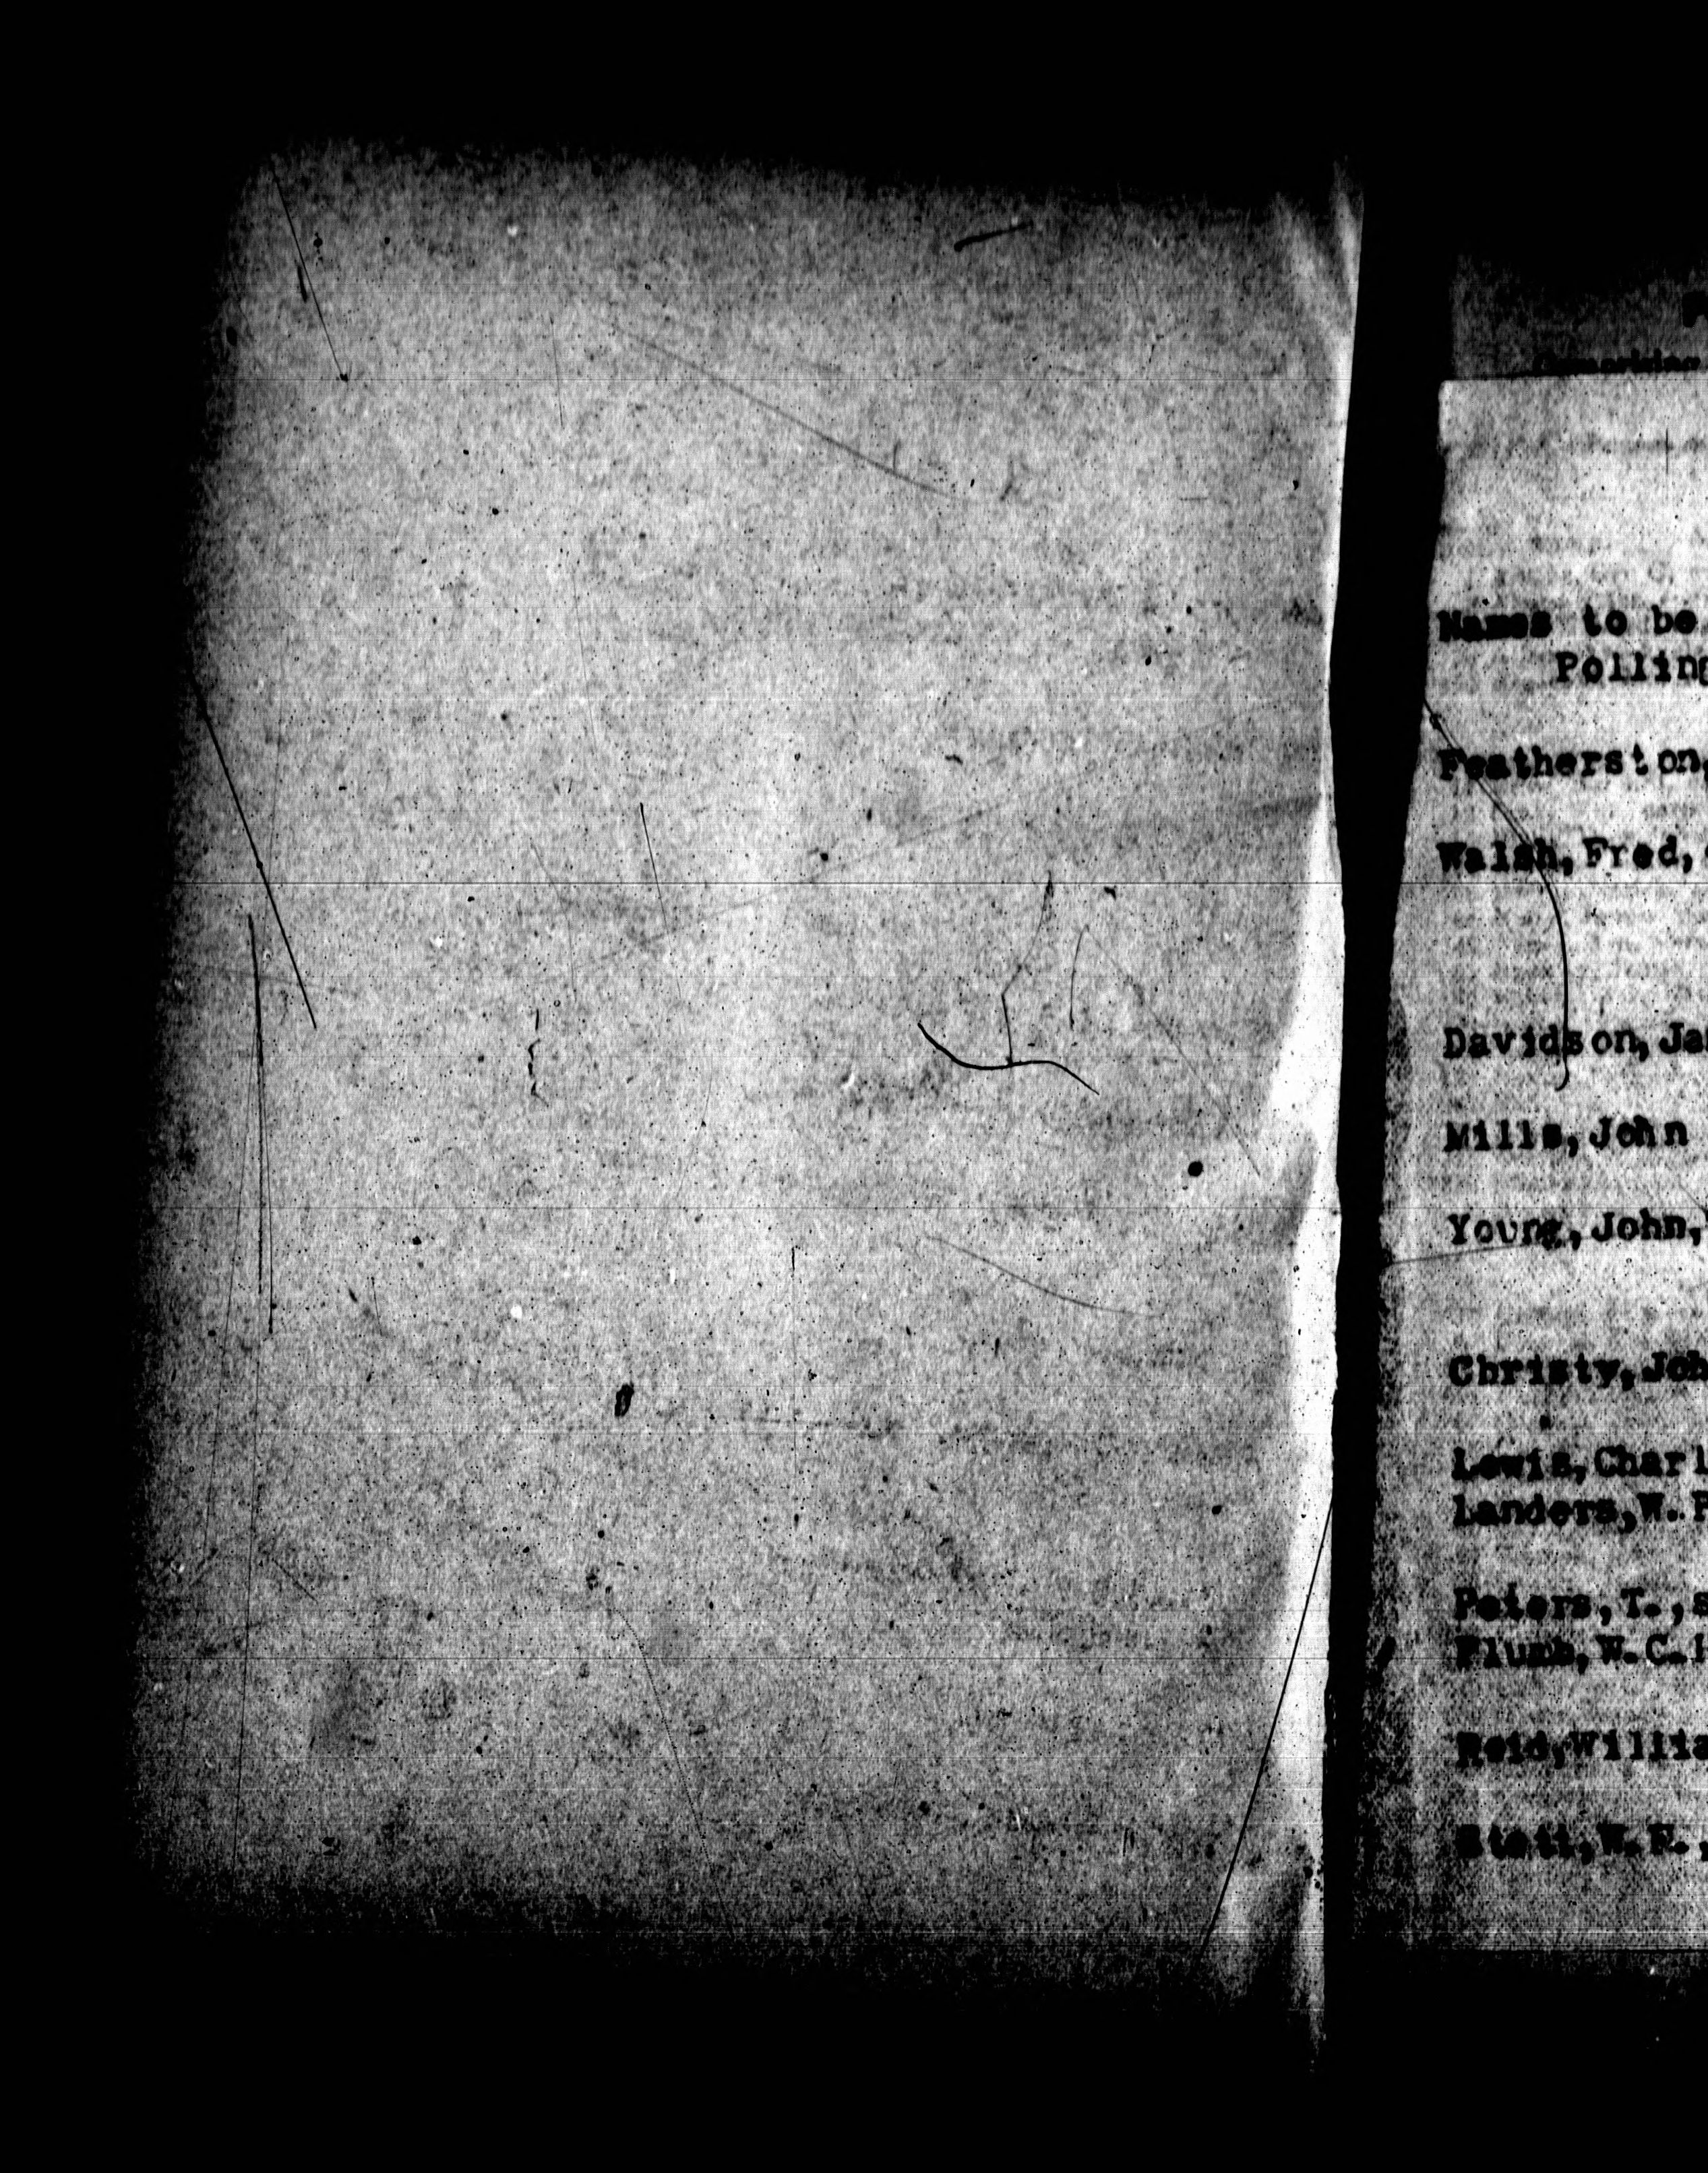 Names to be
Polling
Featherston,
Walsh, Fred,
Davidson, Ja
Mills, John
Young, John,
Christy, Joh
Lewis, Charl
Landers, W.
Peters, T., s
Plumb, W.C.
Reid, Willia
Stott, W.